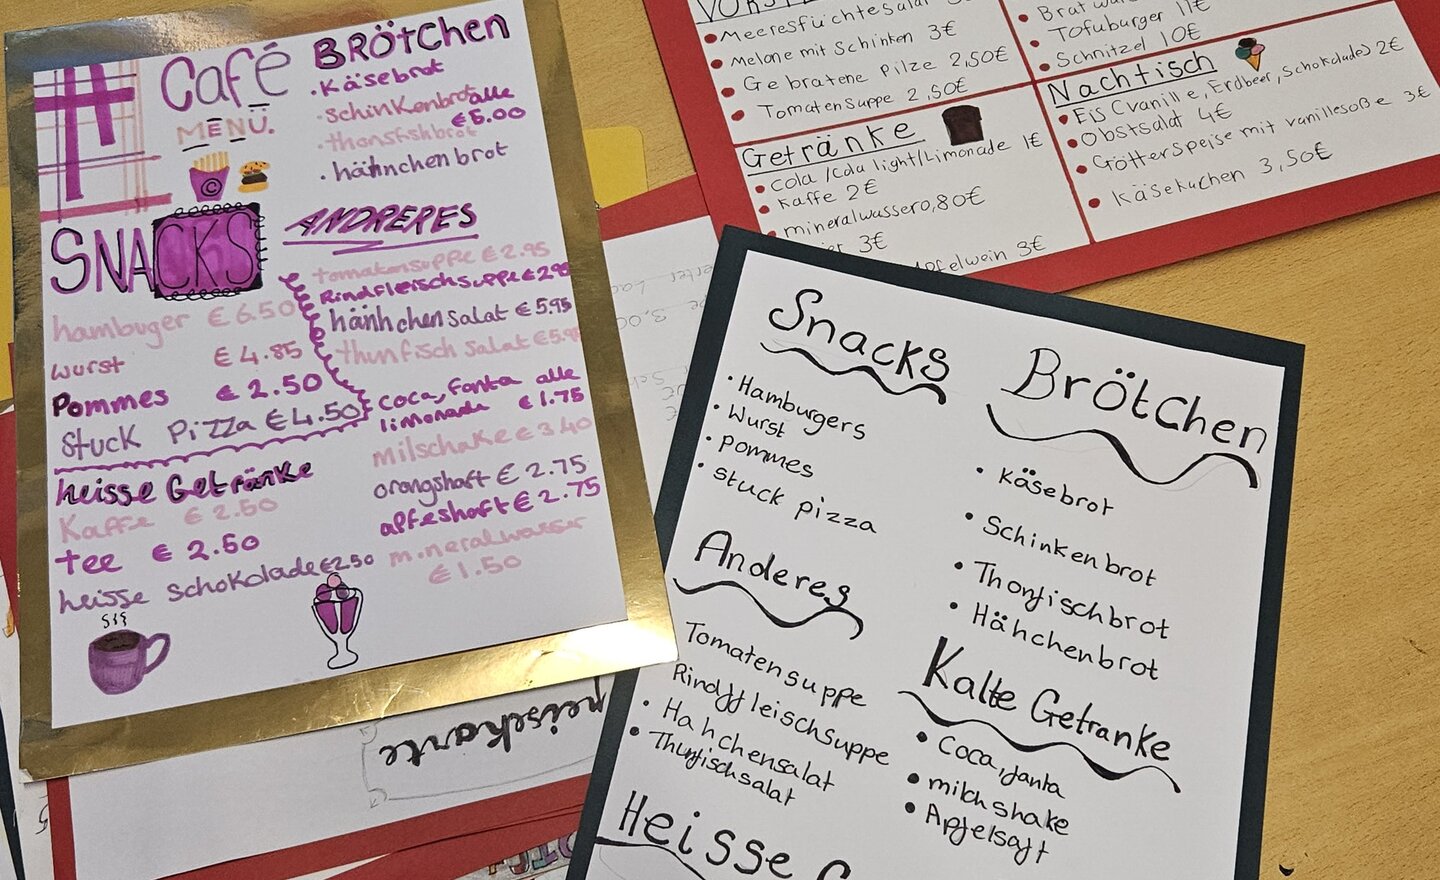 Café
MENÜ.
BRÖtCHEN
. Käsebrot
. schinkenbrot alle
€5.00
. thonsfishbrot
. hähnchenbrot
SNACKS
hambuger €6.50
wurst €4.85
Pommes €2.50
Stuck Pizza €4.50
heisse Getränke
Kaffe €2.50
tee €2.50
heisse schokolade €2.50
ANDRERES
tomatensuppe €2.95
Rindfleischsuppe €2.95
hänhchensalat €5.95
thunfischsalat
coca, fanta alle
limonade €1.75
milschake €3.40
orangshaft €2.75
alfeshaft €2.75
mineralwasser
€1.50
Meeresfüchtesalat
Melone mit Schinken 3€
Gebratene Pilze 2,50€
Tomatensuppe 2,50€
Getränke
Cola/Cola light/Limonade 1€
Kaffe 2€
mineralwasser0,80€
3€
pfelwein 3€
Tofuburger 11€
Schnitzel 10€
Nachtisch
Eis (vanille, Erdbeer, Schokolade) 2€
Obstsalat 4€
Götterspeise mit vanillesoße 3€
Käsekuchen 3,50€
Snacks
. Hamburgers
. Wurst
. pommes
. stuck pizza
Anderes
Tomatensuppe
Rindfleischsuppe
. Hahchensalat
. Thunfischsalat
Heisse G
Brötchen
. Käsebrot
. Schinkenbrot
. Thonfischbrot
. Hähchenbrot
Kalte Getranke
. Coca, fanta
. milchshake
. Apfelsaft
peisekarte